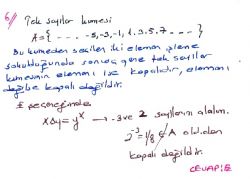 6/ Tek sayılar kümesi
A={ . . . -5,-3,-1,1.3.5.7 . . . }
Bu kümeden seçilen iki eleman işleme
sokulduğunda sonuç yine tek sayılar
kümesinin elemanı ise kapalıdır, elemanı
değilse kapalı değildir.
E seçeneğinde
x∆y=yˣ → -3 ve 2 sayılarını alalım.
2⁻³=1/8 ∉ A old.dan
kapalı değildir.
CEVAP:E